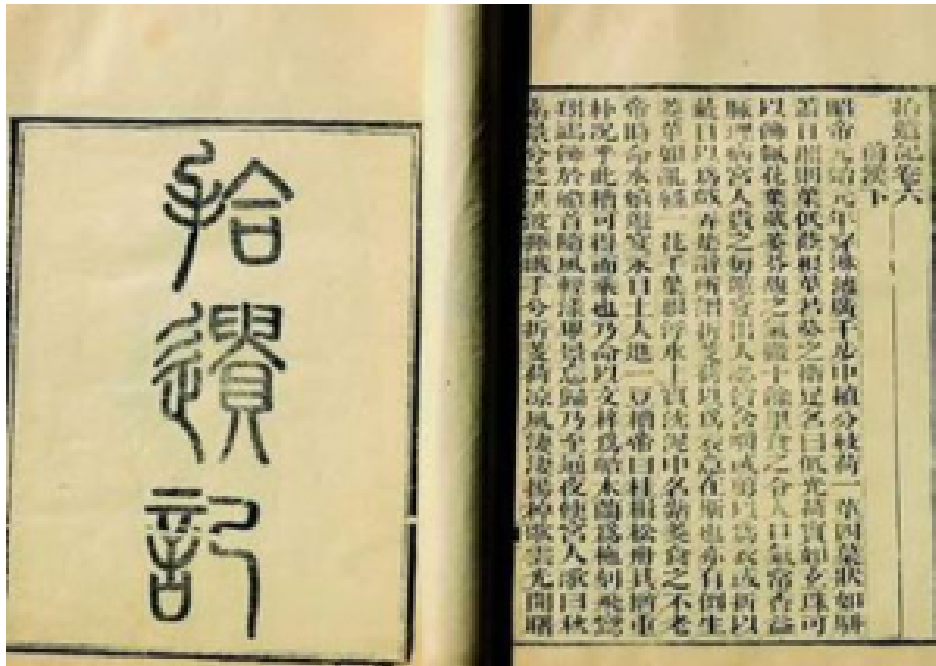 拾遺記
拾遺記卷六
前漢下
昭帝元始元年穿淋池廣千步中植分枝荷一莖四葉狀如駢
蓋日照則葉低蔭根莖若葵之衛足名曰低光荷實如玄珠可
以飾佩花葉萎芬馥之氣徹十餘里食之令人口氣常香益
脉理病宮人貴之每遊宴出入必皆含嚼或剪以爲衣或折以
蔽日以爲戲弄楚辭所謂折芰荷以爲衣意在斯也亦有倒生
菱莖如亂絲一花千葉根浮水上實沈泥中名紫菱食之不老
帝時命水嬉遊宴永日土人進一豆槽帝曰桂楫松舟其猶重
朴況乎此槽可得而乘也乃命以文梓爲船木蘭爲柂刻飛鸞
翔鷁飾於船首隨風輕漾畢景忘歸乃至通夜使宮人歌曰秋
素景兮泛洪波揮纖手兮折芰荷涼風淒淒揚棹歌雲光開曙